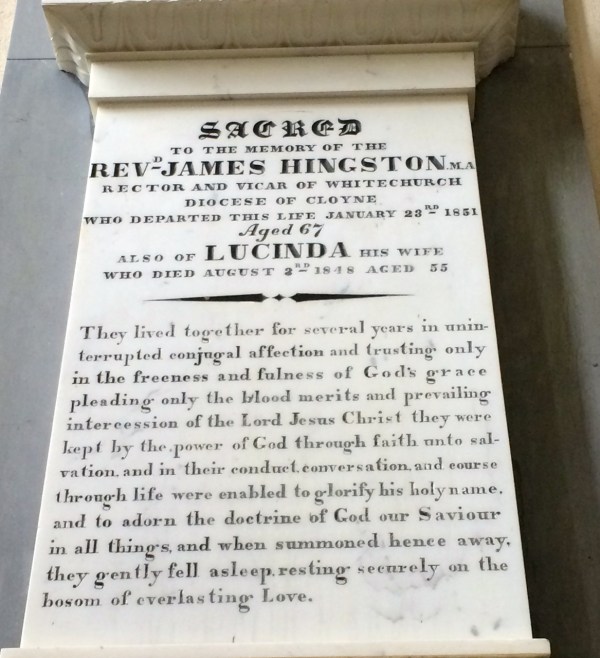 SACRED
TO THE MEMORY OF THE
REVD JAMES HINGSTON M.A
RECTOR AND VICAR OF WHITECHURCH
DIOCESE OF CLOYNE
WHO DEPARTED THIS LIFE JANUARY 23RD 1851
Aged 67
ALSO OF LUCINDA HIS WIFE
WHO DIED AUGUST 2RD 1848 AGED 55
They lived together for several years in unin-
terrupted conjugal affection and trusting only
in the freeness and fulness of God's grace
pleading only the blood merits and prevailing
intercession of the Lord Jesus Christ they were
kept by the power of God through faith unto sal-
vation, and in their conduct, conversation, and course
through life were enabled to glorify his holy name,
and to adorn the doctrine of God our Saviour
in all things, and when summoned hence away,
they gently fell asleep, resting securely on the
bosom of everlasting Love.